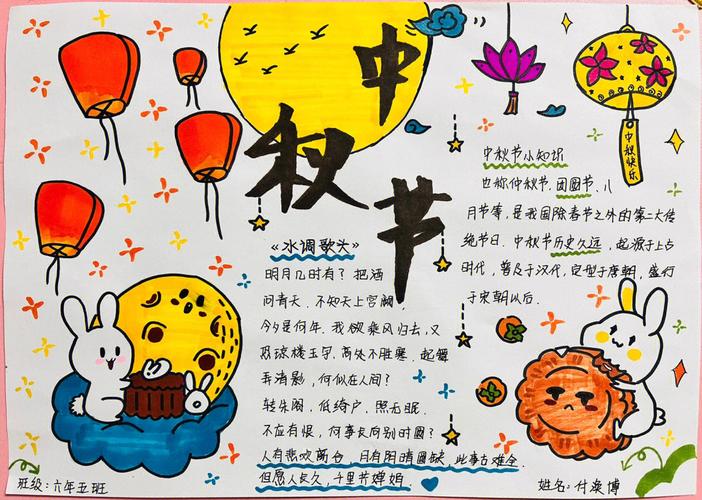 中秋节
中秋快乐
《水调歌头》
明月几时有？把酒
问青天，不知天上宫阙，
今夕是何年。我欲乘风归去，又
恐琼楼玉宇，高处不胜寒．起舞
弄清影，何似在人间？
转朱阁，低绮户，照无眠．
不应有恨，何事长向别时圆？
人有悲欢离合，月有阴晴圆缺，此事古难全．
但愿人长久，千里共婵娟．
中秋节小知识
也称仲秋节、团圆节、八
月节等，是我国除春节之外的第二大传
统节日．中秋节历史久远，起源于上古
时代，普及于汉代，定型于唐朝，盛行
于宋朝以后．
班级：六年五班
姓名：付焕博